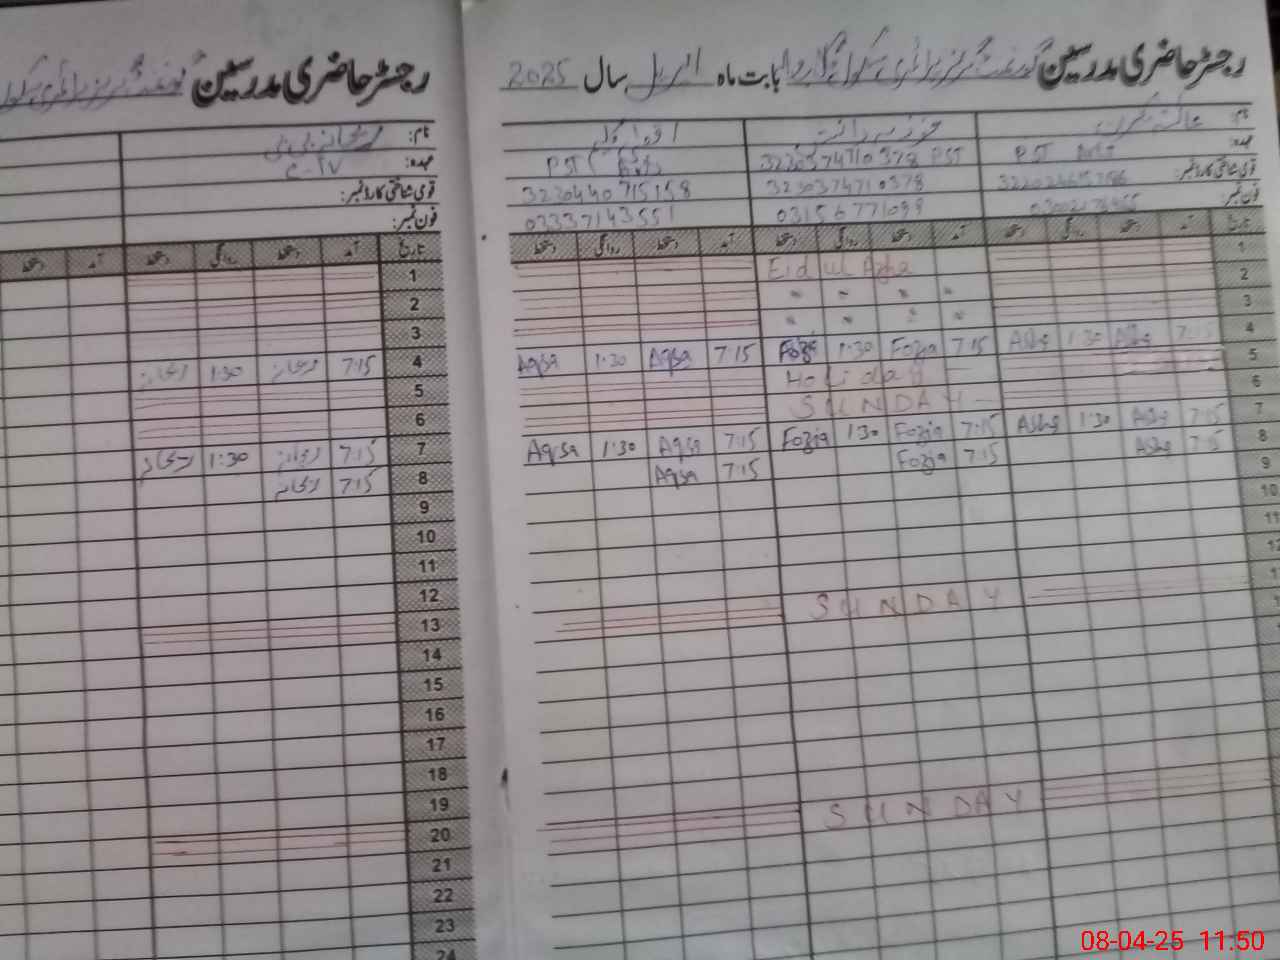 رجسٹر حاضری مدرسین گورنمنٹ گرلز پرائمری سکول بابت ماہ اپریل سال 2025
نام:
عہدہ: PST
PST 3230374710378
PST
قومی شناختی کارڈ نمبر:
3230374710378
3230440715158
فون نمبر:
03156771099
03337143551
تاریخ آمد دستخط روانگی دستخط آمد دستخط روانگی دستخط آمد دستخط روانگی دستخط
1 Eid ul Azha
2 " " " "
3 " " " "
4 7:15 1:30 7:15 Fozia 1:30 Fozia 7:15 Aqsa 1:30 Aqsa
5 Holiday
6 SUNDAY
7 7:15 1:30 7:15 Fozia 1:30 Fozia 7:15 Aqsa 1:30 Aqsa
8 7:15 7:15 Fozia 7:15 Aqsa
9
10
11
12
13 SUNDAY
SUNDAY
رجسٹر حاضری مدرسین گورنمنٹ گرلز پرائمری سکول
نام: ریحانہ بی بی
عہدہ:
قومی شناختی کارڈ نمبر:
فون نمبر:
تاریخ آمد دستخط روانگی دستخط آمد دستخط
1
2
3
4 7:15 ریحانہ 1:30 ریحانہ
5
6
7 7:15 ریحانہ 1:30 ریحانہ
8 7:15 ریحانہ
9
10
11
12
13
14
15
16
17
18
19
20
21
22
23
24
08-04-25 11:50